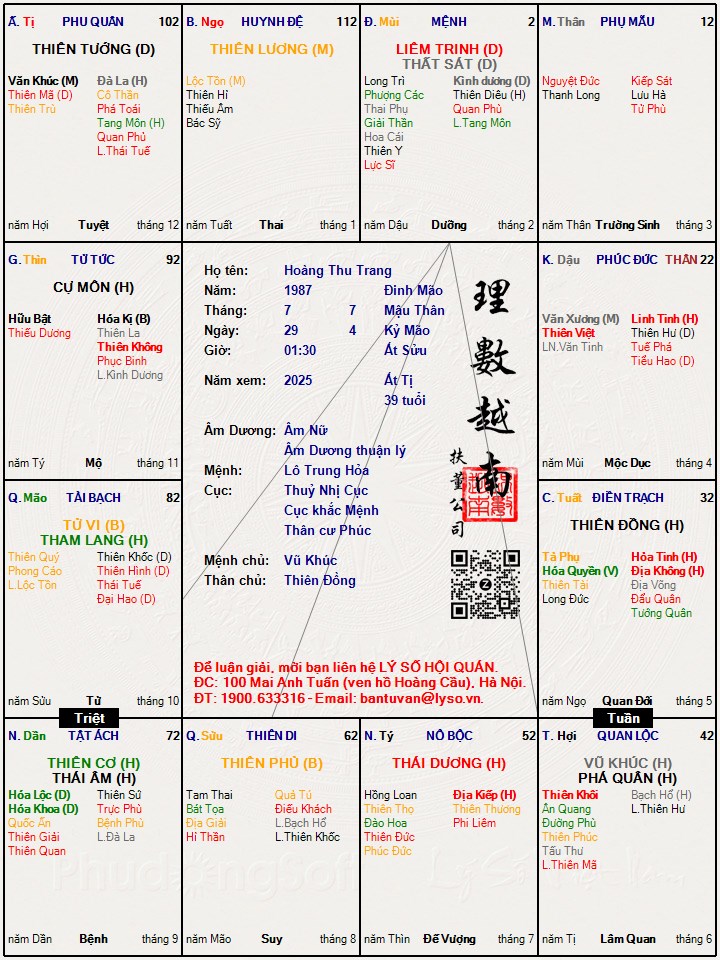 Ấ. Tị PHU QUÂN 102
THIÊN TƯỚNG (D)
Văn Khúc (M) Đà La (H)
Thiên Mã (D) Cô Thần
Thiên Trù Phá Toái
Tang Môn (H)
Quan Phủ
L.Thái Tuế
năm Hợi Tuyệt tháng 12
B. Ngọ HUYNH ĐỆ 112
THIÊN LƯƠNG (M)
Lộc Tồn (M)
Thiên Hỉ
Thiếu Âm
Bác Sỹ
năm Tuất Thai tháng 1
Đ. Mùi MỆNH 2
LIÊM TRINH (D)
THẤT SÁT (D)
Long Trì Kình dương (D)
Phượng Các Thiên Diêu (H)
Thai Phụ Quan Phù
Giải Thần L.Tang Môn
Hoa Cái
Thiên Y
Lực Sĩ
năm Dậu Dưỡng tháng 2
M. Thân PHỤ MẪU 12
Nguyệt Đức Kiếp Sát
Thanh Long Lưu Hà
Tử Phù
năm Thân Trường Sinh tháng 3
G. Thìn TỬ TỨC 92
CỰ MÔN (H)
Hữu Bật Hóa Kị (B)
Thiếu Dương Thiên La
Thiên Không
Phục Binh
L.Kình Dương
năm Tý Mộ tháng 11
Họ tên: Hoàng Thu Trang
Năm: 1987 Đinh Mão
Tháng: 7 7 Mậu Thân
Ngày: 29 4 Kỷ Mão
Giờ: 01:30 Ất Sửu
Năm xem: 2025 Ất Tị
39 tuổi
Âm Dương: Âm Nữ
Âm Dương thuận lý
Mệnh: Lô Trung Hỏa
Cục: Thuỷ Nhị Cục
Cục khắc Mệnh
Thân cư Phúc
Mệnh chủ: Vũ Khúc
Thân chủ: Thiên Đồng
理數越南
扶董公司
Z
Để luận giải, mời bạn liên hệ LÝ SỐ HỘI QUÁN.
ĐC: 100 Mai Anh Tuấn (ven hồ Hoàng Cầu), Hà Nội.
ĐT: 1900.633316 - Email: bantuvan@lyso.vn.
K. Dậu PHÚC ĐỨC THÂN 22
Văn Xương (M) Linh Tinh (H)
Thiên Việt Thiên Hư (D)
LN.Văn Tinh Tuế Phá
Tiểu Hao (D)
năm Mùi Mộc Dục tháng 4
Q. Mão TÀI BẠCH 82
TỬ VI (B)
THAM LANG (H)
Thiên Quý Thiên Khốc (D)
Phong Cáo Thiên Hình (D)
L.Lộc Tồn Thái Tuế
Đại Hao (D)
năm Sửu Tử tháng 10
Triệt
C. Tuất ĐIỀN TRẠCH 32
THIÊN ĐỒNG (H)
Tả Phụ Hỏa Tinh (H)
Hóa Quyền (V) Địa Không (H)
Thiên Tài Địa Võng
Long Đức Đẩu Quân
Tướng Quân
năm Ngọ Quan Đới tháng 5
Tuần
N. Dần TẬT ÁCH 72
THIÊN CƠ (H)
THÁI ÂM (H)
Hóa Lộc (D) Thiên Sứ
Hóa Khoa (D) Trực Phù
Quốc Ấn Bệnh Phù
Thiên Giải L.Đà La
Thiên Quan
năm Dần Bệnh tháng 9
Q. Sửu THIÊN DI 62
THIÊN PHỦ (B)
Tam Thai Quả Tú
Bát Tọa Điếu Khách
Địa Giải L.Bạch Hổ
Hỉ Thần L.Thiên Khốc
năm Mão Suy tháng 8
N. Tý NÔ BỘC 52
THÁI DƯƠNG (H)
Hồng Loan Địa Kiếp (H)
Thiên Thọ Thiên Thương
Đào Hoa Phi Liêm
Thiên Đức
Phúc Đức
năm Thìn Đế Vượng tháng 7
T. Hợi QUAN LỘC 42
VŨ KHÚC (H)
PHÁ QUÂN (H)
Thiên Khôi Bạch Hổ (H)
Ân Quang L.Thiên Hư
Đường Phù
Thiên Phúc
Tấu Thư
L.Thiên Mã
năm Tị Lâm Quan tháng 6